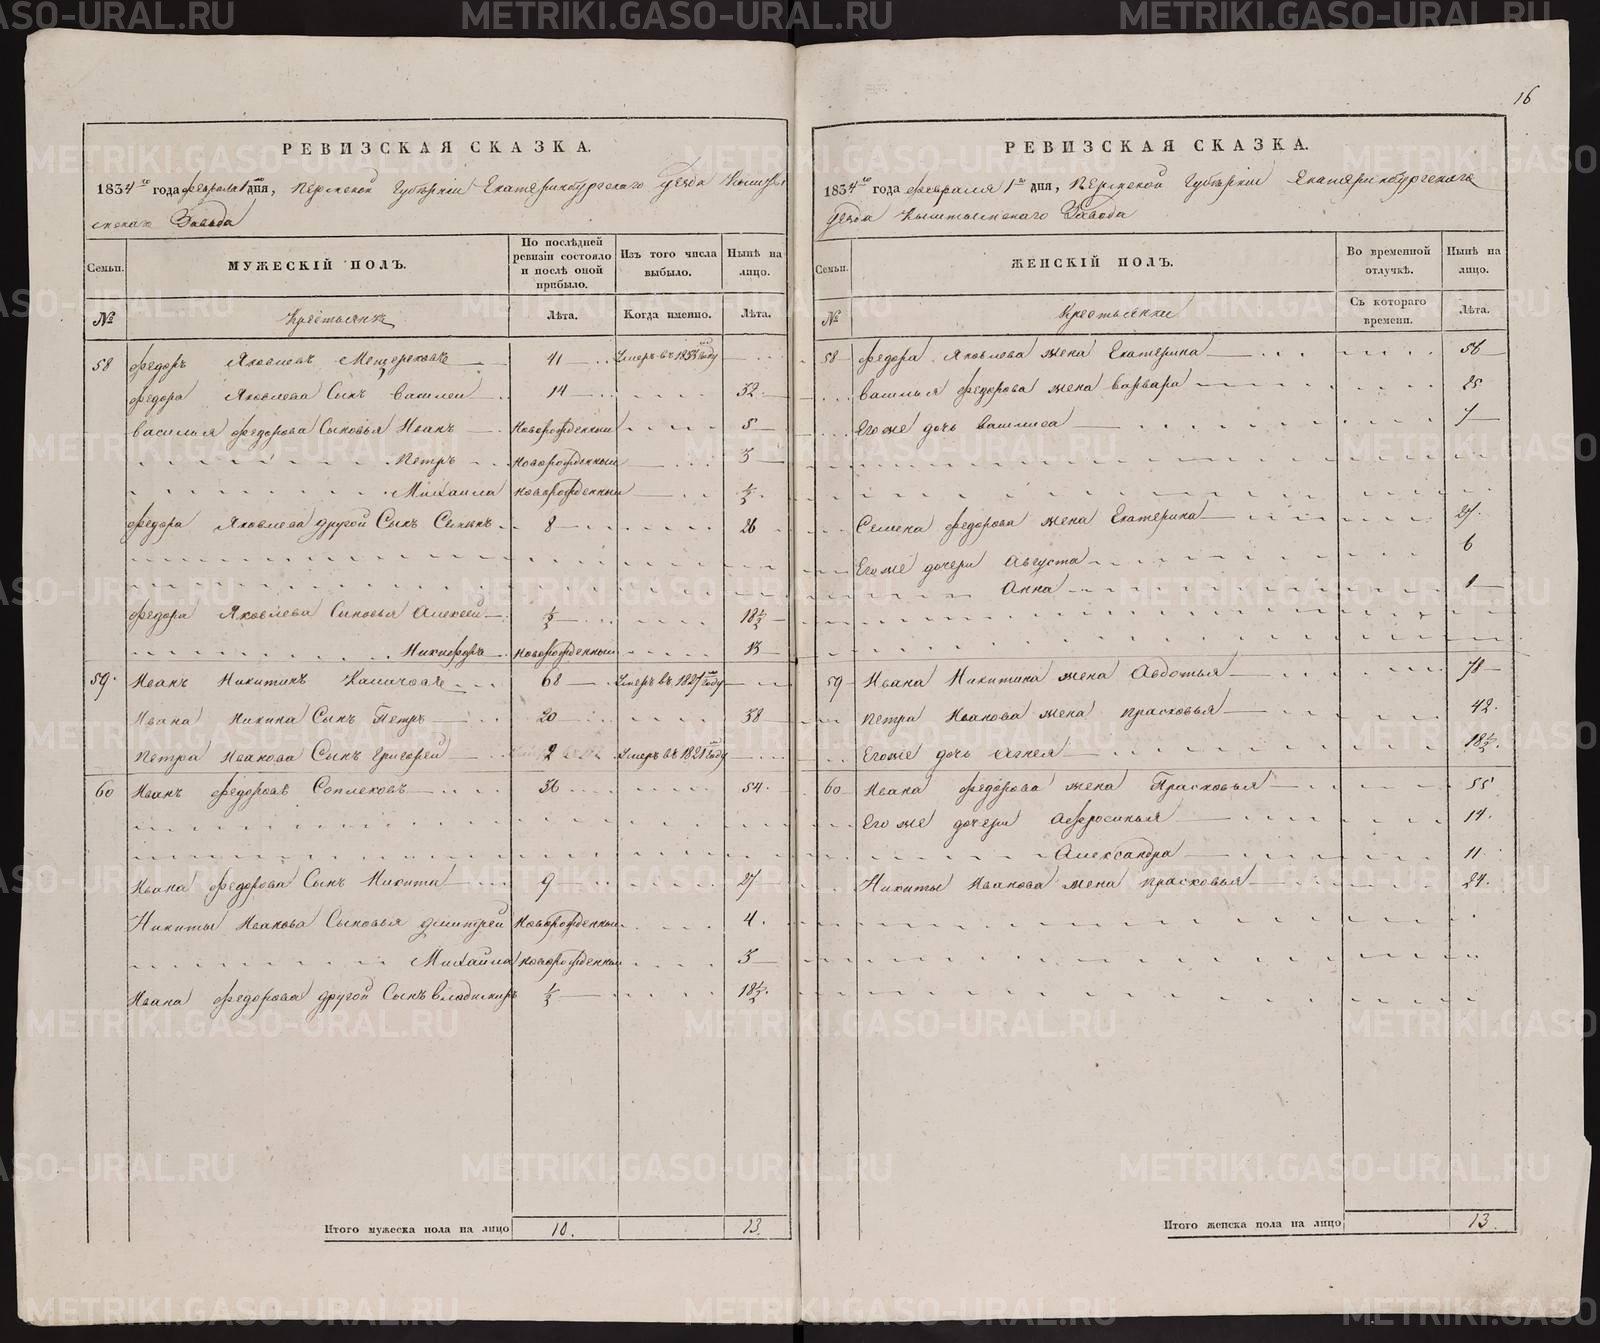 16
РЕВИЗСКАЯ СКАЗКА.
1834го года февраля 1го дня, Пермской Губернiи Екатеринбургского уезда Кышты
мскаго Завода
Семьи.
МУЖЕСКIЙ ПОЛЪ.
По послѣдней ревизiи состояло и послѣ оной прибыло.
Изъ того числа выбыло.
Нынѣ на лицо.
№
Крестьяне
Лѣта.
Когда именно.
Лѣта.
58 Федоръ Яковлевъ Мещеряковъ 41 Умеръ въ 1833м году
Федора Яковлева Сынъ Василей 14 32
Василья Федорова Сыновья Иванъ Новорожденный 5
Петръ Новорожденный 3
Михайла новорожденный ½
Федора Яковлева другой Сынъ Семенъ 8 26
Федора Яковлева Сыновья Алексей ½ 18½
Никифоръ Новорожденный 13
59 Иванъ Никитинъ 68 Умеръ въ 1827м году
Ивана Никина Сынъ Петръ 20 38
Петра Иванова Сынъ Григорей 2 Умеръ въ 1821м году
60 Иванъ Федоровъ Сопляковъ 36 54
Ивана Федорова Сынъ Никита 9 27
Никиты Иванова Сыновья Дмитрей Новорожденный 4
Михайла новорожденный 3
Ивана Федорова другой Сынъ Владимиръ ½ 18½
Итого мужеска пола на лицо 10. 13.
РЕВИЗСКАЯ СКАЗКА.
1834го года февраля 1го дня, Пермской Губернiи Екатеринбургскаго
уезда Кыштымскаго Завода
Семьи.
ЖЕНСКIЙ ПОЛЪ.
Во временной отлучкѣ.
Нынѣ на лицо.
№
Крестьянки
Съ котораго времени.
Лѣта.
58 Федора Яковлева жена Екатерина 56
Василья Федорова жена Варвара 25
Егоже дочь Василиса 7
Семена Федорова жена Екатерина 27
Егоже дочери Августа 6
Анна 1
59 Ивана Никитина жена Авдотья 78
Петра Иванова жена Прасковья 42
Егоже дочь Агнея 18½
60 Ивана Федорова жена Прасковья 55
Его же дочери Афросинья 14
Александра 11
Никиты Иванова жена Прасковья 24
Итого женска пола на лицо 13.
METRIKI.GASO-URAL.RU